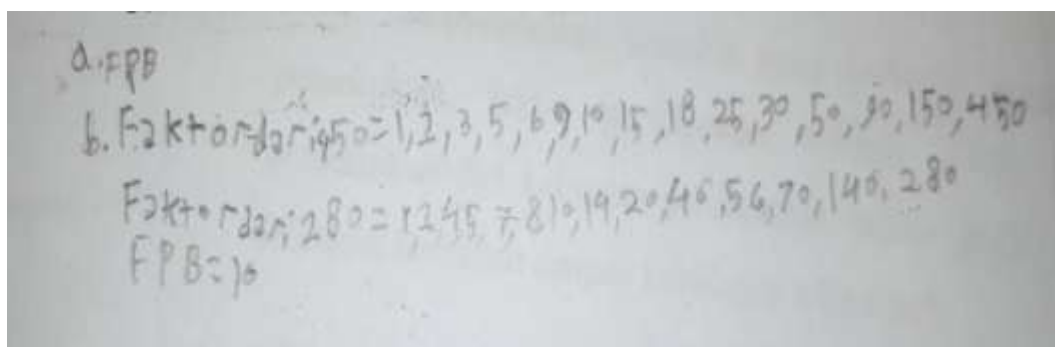 a. FPB
b. Faktor dari 450 = 1, 2, 3, 5, 6, 9, 10, 15, 18, 25, 30, 50, 90, 150, 450
Faktor dari 280 = 1, 2, 4, 5, 7, 8, 10, 14, 20, 40, 56, 70, 140, 280
FPB = 10